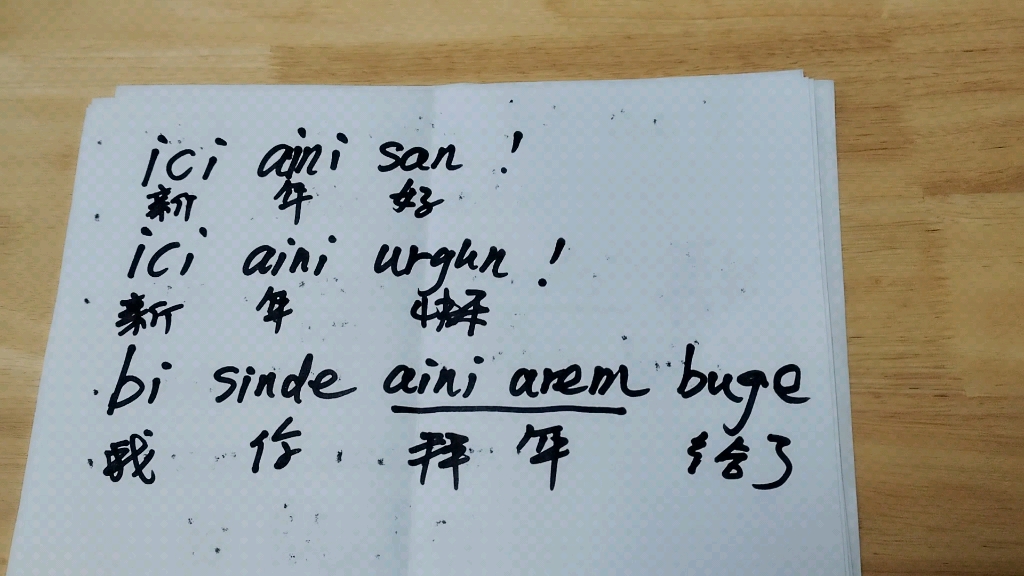 ici aini san !
新 年 好
ici aini urghn !
新 年 快乐
bi sinde aini arem buge
我 你 拜 年 给了